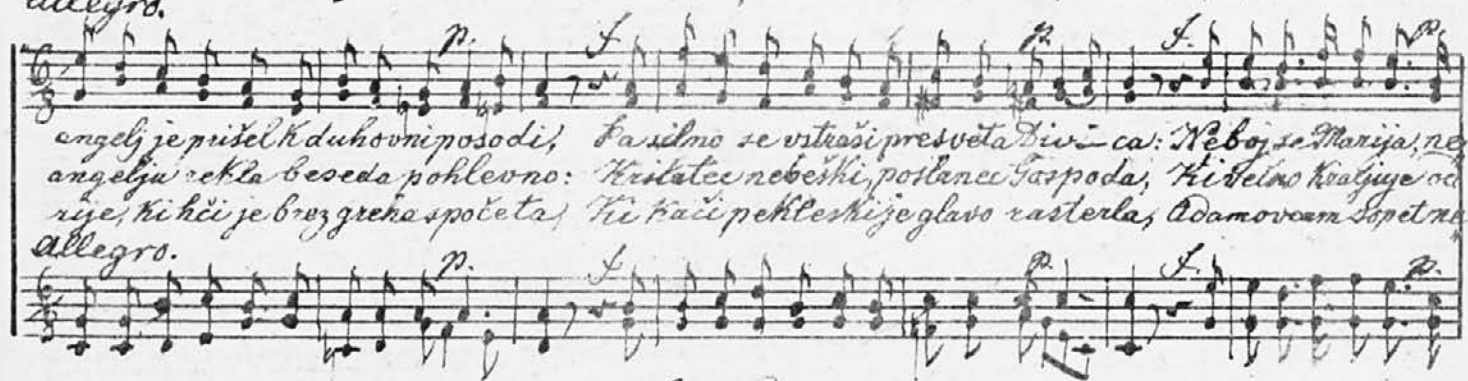 Allegro.
p. f. p. f. p.
angelj je prišel k duhovni posodi, Pa silno se vstraši presveta Divi-ca: Neboj se Marija, ne
angelju rekla beseda pohlevno: Krilatec nebeški, poslanec Gospoda, Ki večno kraljuje od
rije, ki hči je brez greha spočeta, Ki kači pekleski je glavo rasterla, Adamovcam sopet ne
Allegro.
p. f. p. f. p.